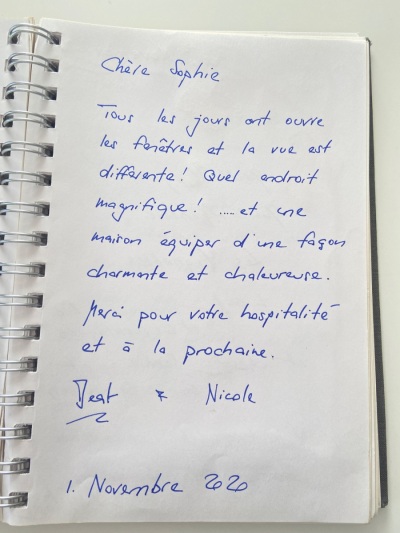 Chère Sophie
Tous les jours ont ouvre
les fenêtres et la vue est
differente! Quel endroit
magnifique! ..... et une
maison équiper d'une façon
charmante et chaleureuse.
Merci pour votre hospitalité
et à la prochaine.
Beat & Nicole
1. Novembre 2020